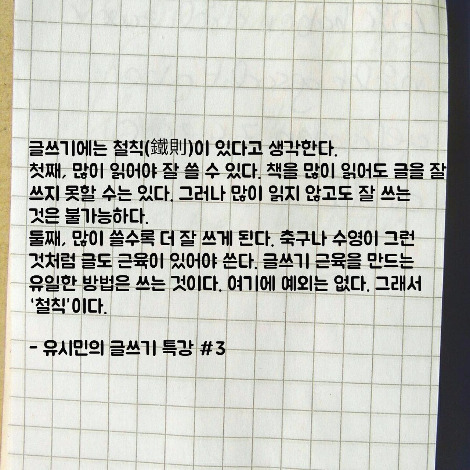 글쓰기에는 철칙(鐵則)이 있다고 생각한다.
첫째, 많이 읽어야 잘 쓸 수 있다. 책을 많이 읽어도 글을 잘
쓰지 못할 수는 있다. 그러나 많이 읽지 않고도 잘 쓰는
것은 불가능하다.
둘째, 많이 쓸수록 더 잘 쓰게 된다. 축구나 수영이 그런
것처럼 글도 근육이 있어야 쓴다. 글쓰기 근육을 만드는
유일한 방법은 쓰는 것이다. 여기에 예외는 없다. 그래서
'철칙'이다.
- 유시민의 글쓰기 특강 #3